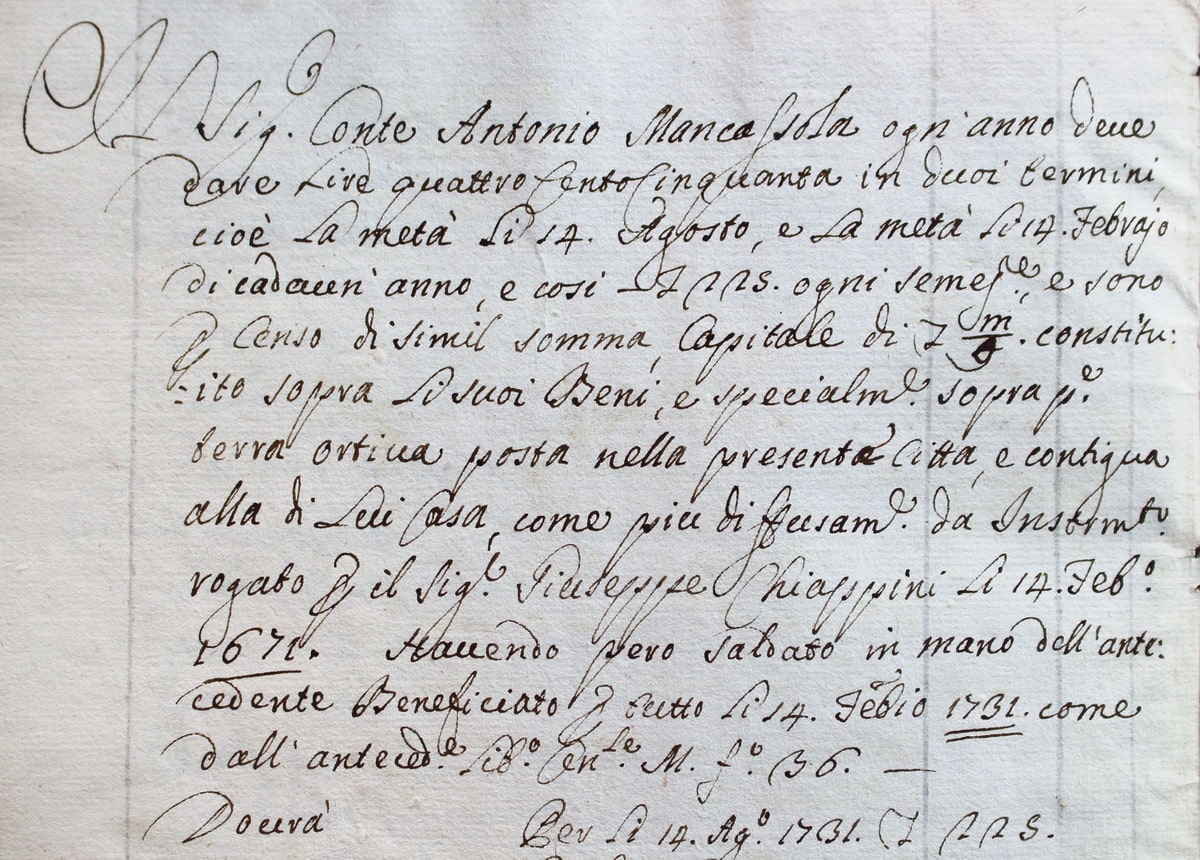 Il Sig.r Conte Antonio Mancassola ogn'anno deue
dare Lire quattro Cento Cinquanta in duoi termini,
cioè La metà Li 14. Agosto, e La metà Li 14. Febrajo
di cadaun' anno, e così £ 225. ogni semes.e, e sono
Censo di simil somma, Capitale di £ m/9. constitu:
:ito sopra Li suoi Beni, e specialm.e sopra p.e
terra ortiua posta nella presente Città, e contigua
alla di Lui Casa, come più diffusam.e da Instrm.to
rogato il Sig.r Giuseppe Chiappini Li 14. Feb.o
1671. Hauendo pero saldato in mano dell'ante:
cedente Beneficiato tutto Li 14. Febio 1731. come
dall'anteced.e Lib.o Cen.le M. f.o 36. —
Dourà Per Li 14. Ag.o 1731. £ 225.